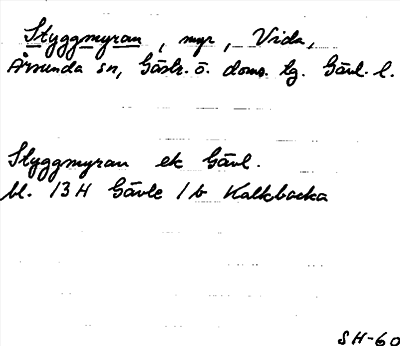 Styggmyran, myr, Vida,
Årsunda sn, Gästr. ö. doms. tg. Gävl. l.
Styggmyran ek Gävl.
bl. 13H Gävle 1b Kalkbacka
SH-60